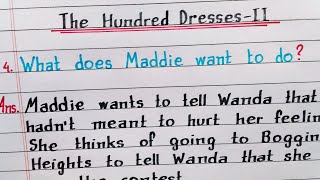 The Hundred Dresses-II
4. What does Maddie want to do?
Ans. Maddie wants to tell Wanda that
hadn't meant to hurt her feelin
She thinks of going to Boggin
Heights to tell Wanda that she
the contest